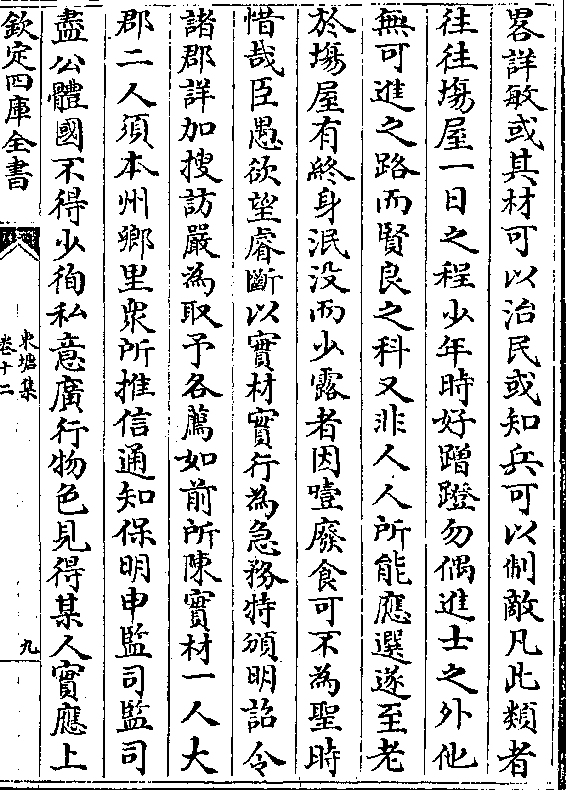 畧詳敏或其材可以治民或知兵可以制敵凡此類者
往往塲屋一日之程少年時好蹭蹬勿偶進士之外他
無可進之路而賢良之科又非人人所能應選遂至老
於塲屋有終身泯没而少露者因噎廢食可不為聖時
惜哉臣愚欲望睿斷以實材實行為急務特頒明詔令
諸郡詳加搜訪嚴為取予各薦如前所陳實材一人大
郡二人須本州鄉里衆所推信通知保明申監司監司
盡公體國不得少徇私意廣行物色見得某人實應上
欽定四庫全書
東塘集
卷十二
九